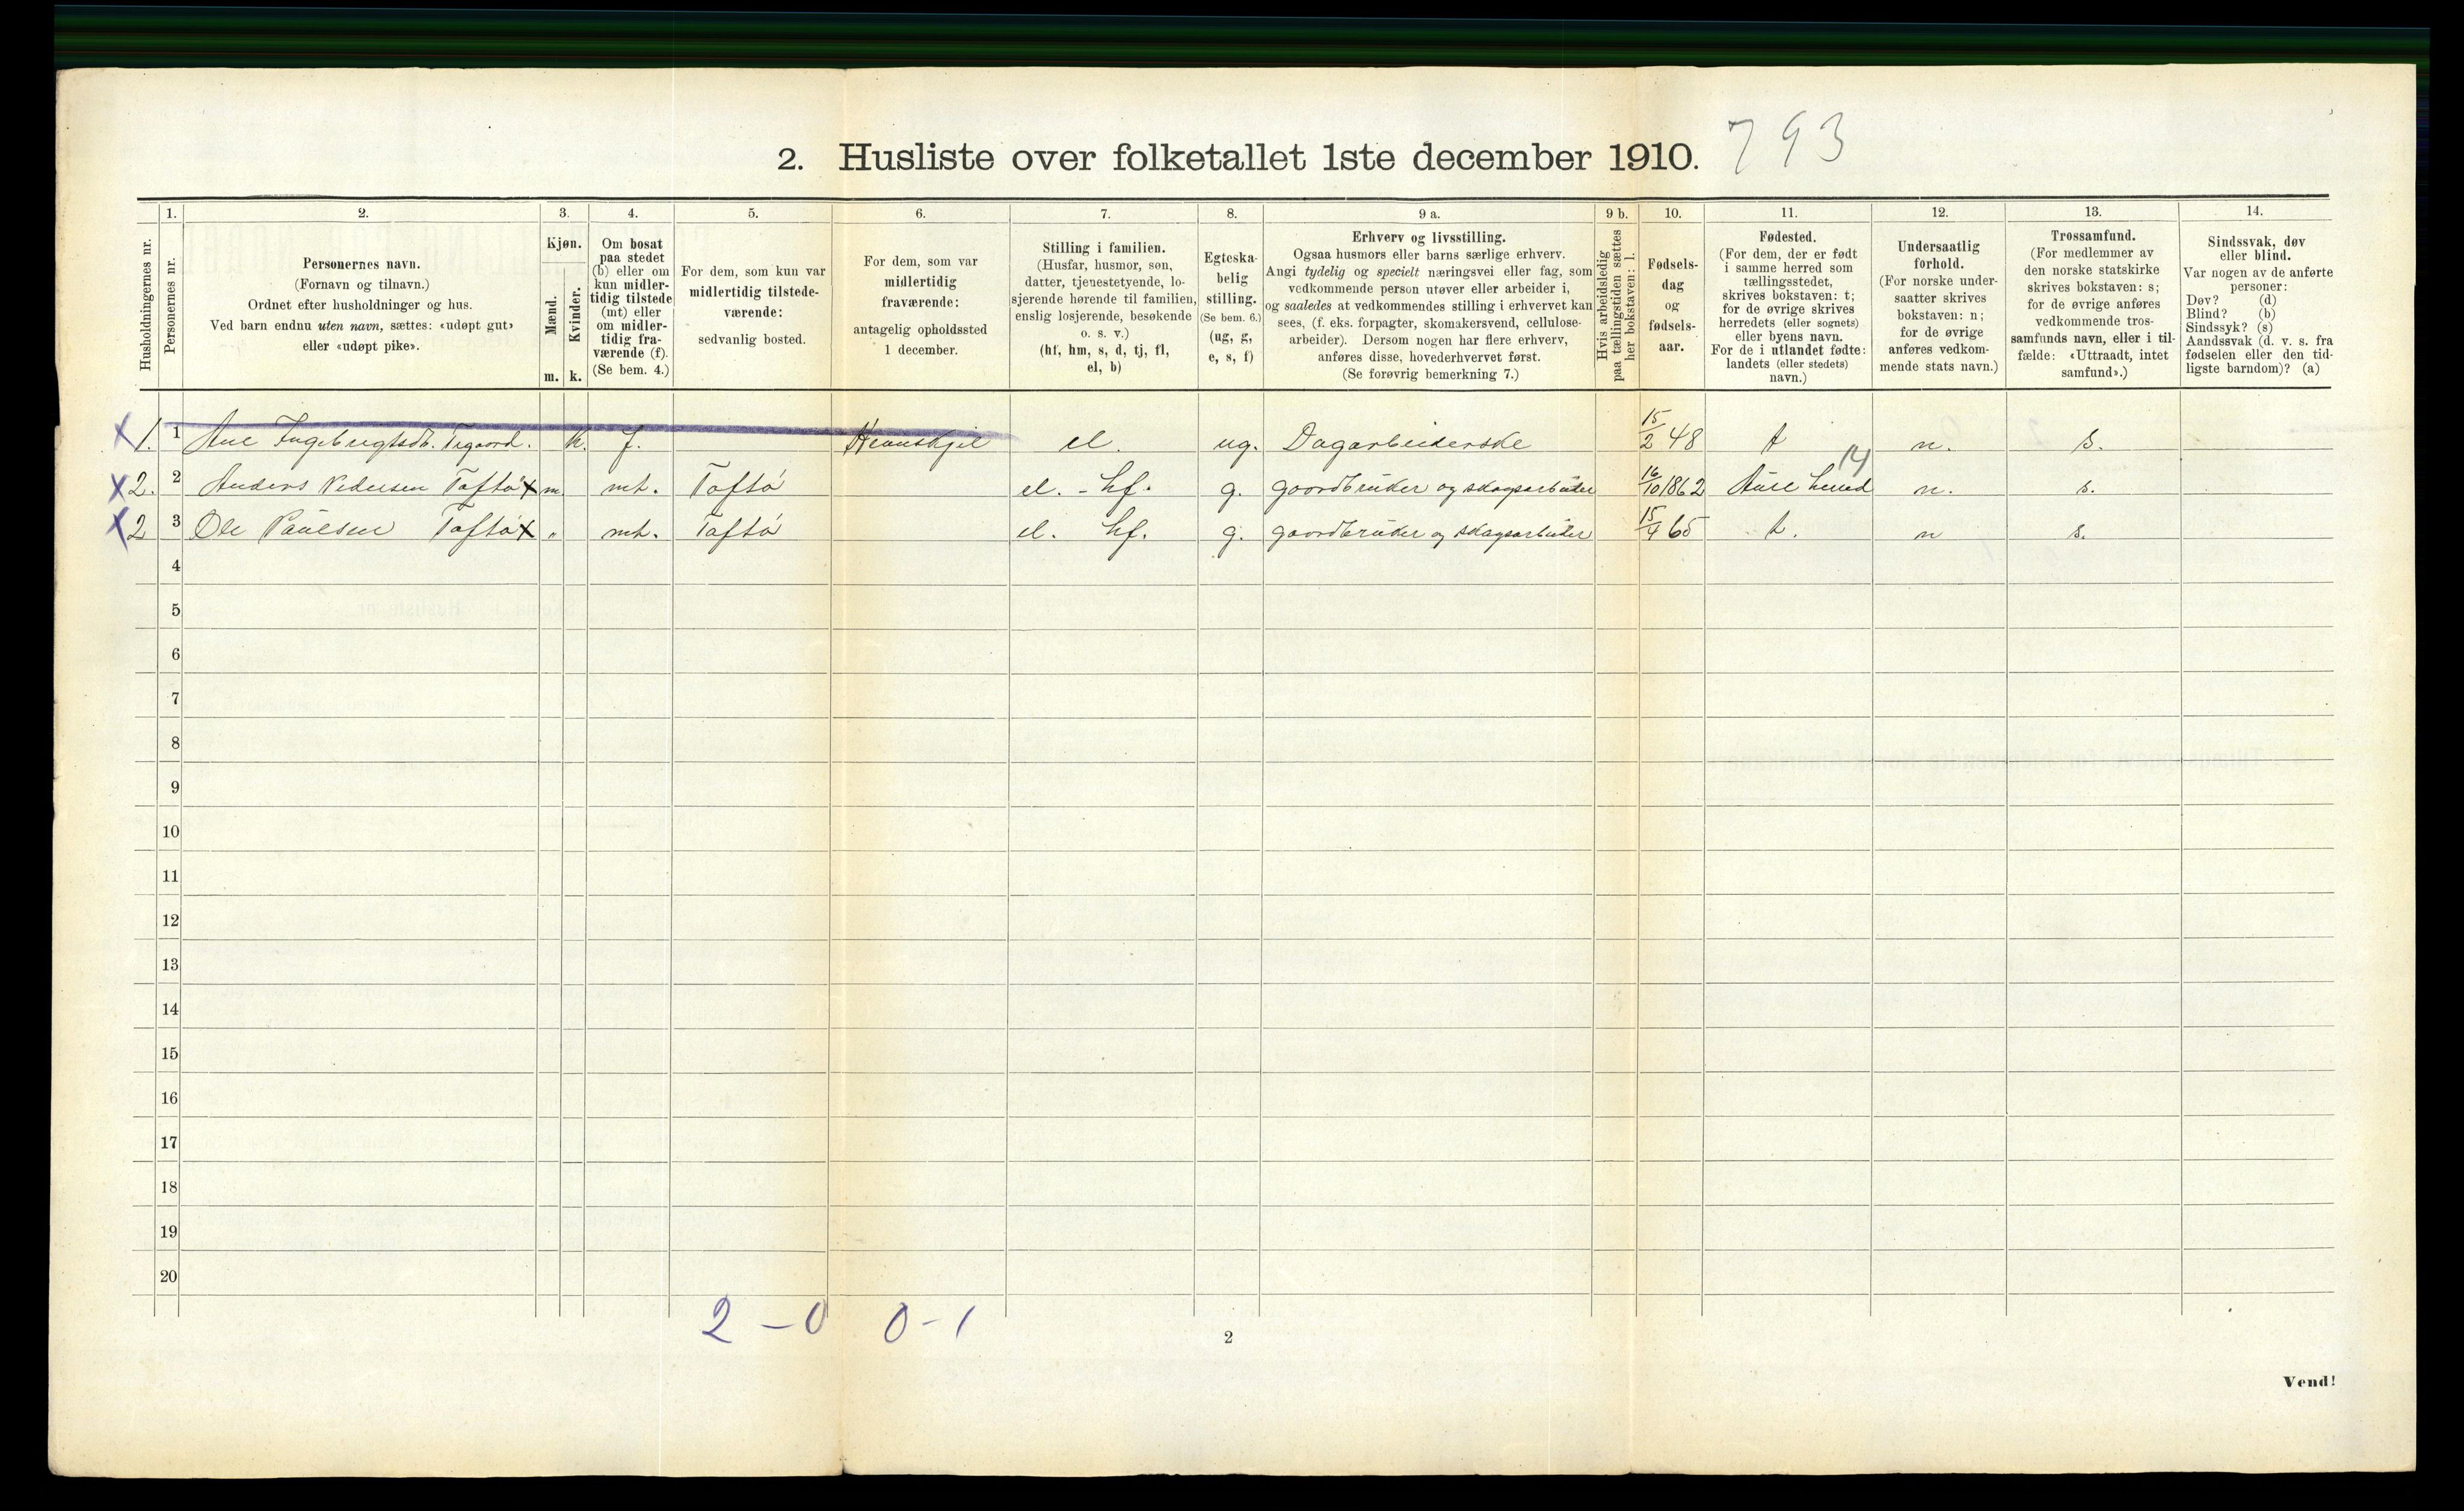 2. Husliste over folketallet 1ste december 1910. 793
1. 2. 3. 4. 5. 6. 7. 8. 9 a. 9 b. 10. 11. 12. 13. 14.
Husholdningernes nr.
Personernes nr.
Personernes navn.
(Fornavn og tilnavn.)
Ordnet efter husholdninger og hus.
Ved barn endnu uten navn, sættes: «udøpt gut»
eller «udøpt pike».
Kjøn.
Mænd.
Kvinder.
m. k.
Om bosat
paa stedet
(b) eller om
kun midler-
tidig tilstede
(mt) eller
om midler-
tidig fra-
værende (f).
(Se bem. 4.)
For dem, som kun var
midlertidig tilstede-
værende:
sedvanlig bosted.
For dem, som var
midlertidig
fraværende:
antagelig opholdssted
1 december.
Stilling i familien.
(Husfar, husmor, søn,
datter, tjenestetyende, lo-
sjerende hørende til familien,
enslig losjerende, besøkende
o. s. v.)
(hf, hm, s, d, tj, fl,
el, b)
Egteska-
belig
stilling.
(Se bem. 6.)
(ug, g,
e, s, f)
Erhverv og livsstilling.
Ogsaa husmors eller barns særlige erhverv.
Angi tydelig og specielt næringsvei eller fag, som
vedkommende person utøver eller arbeider i,
og saaledes at vedkommendes stilling i erhvervet kan
sees, (f. eks. forpagter, skomakersvend, cellulose-
arbeider). Dersom nogen har flere erhverv,
anføres disse, hovederhvervet først.
(Se forøvrig bemerkning 7.)
Hvis arbeidsledig
paa tællingstiden sættes
her bokstaven: l.
Fødsels-
dag
og
fødsels-
aar.
Fødested.
(For dem, der er født
i samme herred som
tællingsstedet,
skrives bokstaven: t;
for de øvrige skrives
herredets (eller sognets)
eller byens navn.
For de i utlandet fødte:
landets (eller stedets)
navn.)
Undersaatlig
forhold.
(For norske under-
saatter skrives
bokstaven: n;
for de øvrige
anføres vedkom-
mende stats navn.)
Trossamfund.
(For medlemmer av
den norske statskirke
skrives bokstaven: s;
for de øvrige anføres
vedkommende tros-
samfunds navn, eller i til-
fælde: «Uttraadt, intet
samfund».)
Sindssvak, døv
eller blind.
Var nogen av de anførte
personer:
Døv? (d)
Blind? (b)
Sindssyk? (s)
Aandssvak (d. v. s. fra
fødselen eller den tid-
ligste barndom)? (a)
X 1. 1 Ane Ingebrigtsdt. k. f. el. ug. Dagarbeiderske 15/2 48 t n. s.
X 2. 2 Anders Pedersen Taftø X m mt. Taftø el. - hf. g. gaardbruker og skogsarbeider 16/10 1862 Aure herred 14 n. s.
X 2 3 Ole Paulsen Taftø X " mt. Taftø el. hf. g. gaardbruker og skogsarbeider 15/4 65 t. n s.
4
5
6
7
8
9
10
11
12
13
14
15
16
17
18
19
20
2 - 0 0 - 1
2
Vend!